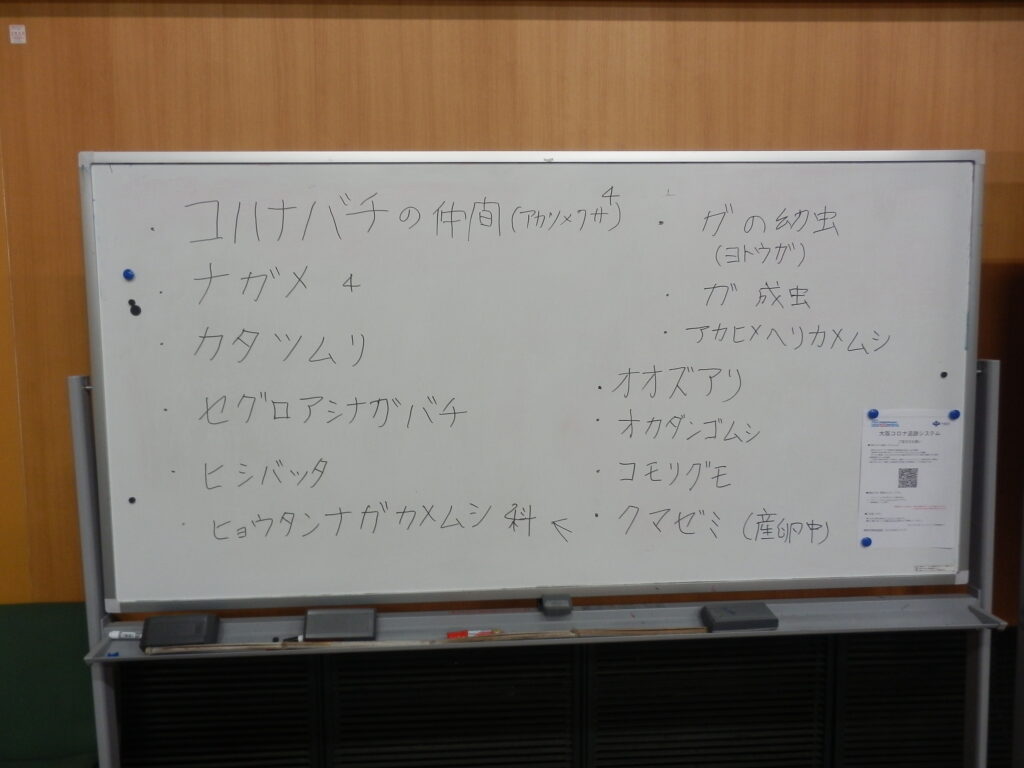 ・コハナバチの仲間(アカツメクサ) 4
・ナガメ 4
・カタツムリ
・セグロアシナガバチ
・ヒシバッタ
・ヒョウタンナガカメムシ科 ←
・ガの幼虫
(ヨトウガ)
・ガ 成虫
・アカヒメヘリカメムシ
・オオズアリ
・オカダンゴムシ
・コモリグモ
・クマゼミ (産卵中)
大阪コロナ追跡システム